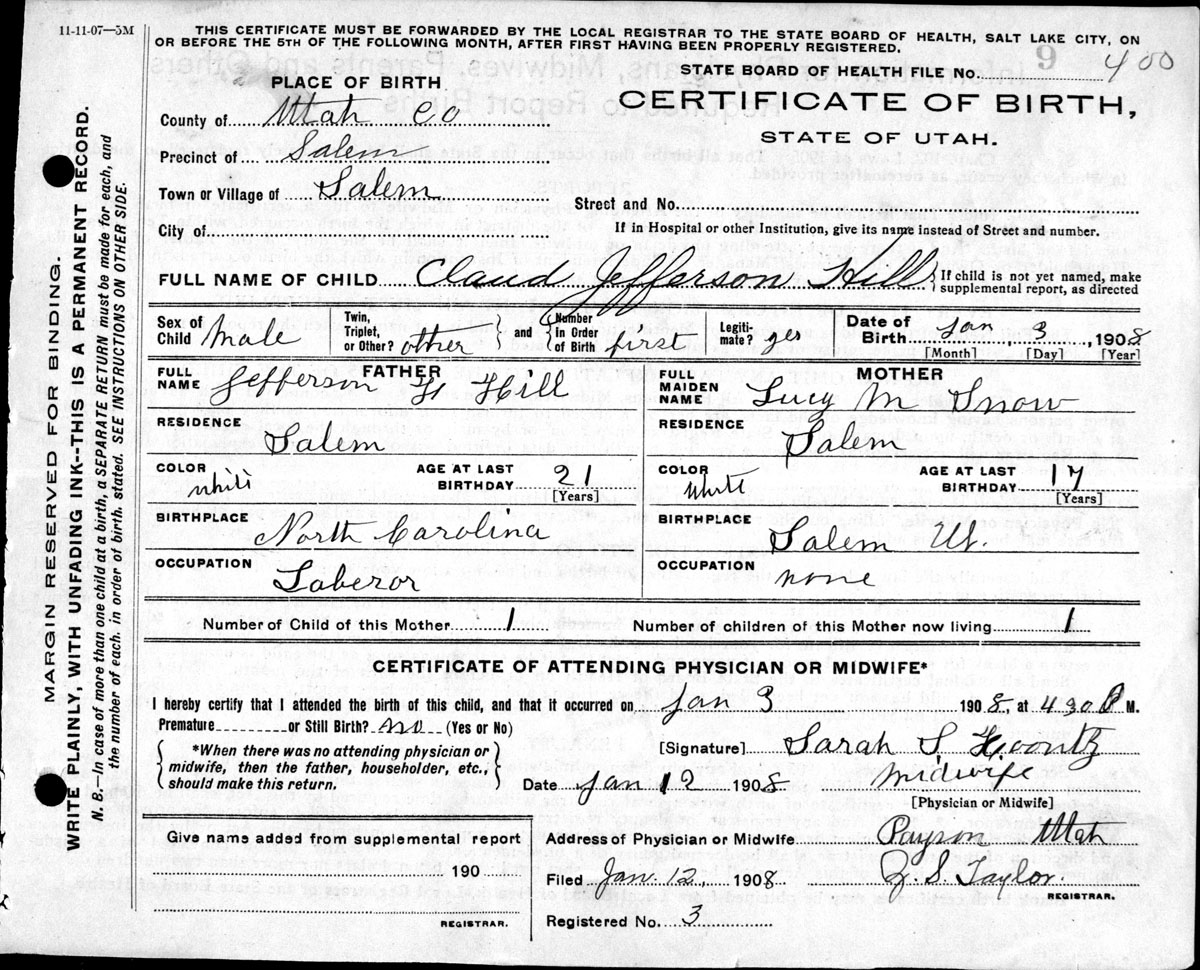 11-11-07—5M
THIS CERTIFICATE MUST BE FORWARDED BY THE LOCAL REGISTRAR TO THE STATE BOARD OF HEALTH, SALT LAKE CITY, ON
OR BEFORE THE 5TH OF THE FOLLOWING MONTH, AFTER FIRST HAVING BEEN PROPERLY REGISTERED.
STATE BOARD OF HEALTH FILE No. 9 400
PLACE OF BIRTH
CERTIFICATE OF BIRTH,
STATE OF UTAH.
County of Utah Co
Precinct of Salem
Town or Village of Salem
Street and No.
City of
If in Hospital or other Institution, give its name instead of Street and number.
FULL NAME OF CHILD Claud Jefferson Hill { If child is not yet named, make
supplemental report, as directed
Sex of Child Male
Twin, Triplet, or Other? other } and { Number In Order of Birth first
Legiti- mate? yes
Date of Birth Jan 3, 1908
[Month] [Day] [Year]
FATHER
FULL NAME Jefferson H Hill
MOTHER
FULL MAIDEN NAME Lucy M Snow
RESIDENCE Salem
RESIDENCE Salem
COLOR white AGE AT LAST BIRTHDAY 21 [Years]
COLOR White AGE AT LAST BIRTHDAY 17 [Years]
BIRTHPLACE North Carolina
BIRTHPLACE Salem Ut.
OCCUPATION Laberor
OCCUPATION none
Number of Child of this Mother 1 Number of children of this Mother now living 1
CERTIFICATE OF ATTENDING PHYSICIAN OR MIDWIFE*
I hereby certify that I attended the birth of this child, and that it occurred on Jan 3 1908, at 430 P M.
Premature or Still Birth? no (Yes or No)
{ *When there was no attending physician or
midwife, then the father, householder, etc.,
should make this return. }
[Signature] Sarah S Koontz
Date Jan 12 1908 Midwife
[Physician or Midwife]
Give name added from supplemental report
190
REGISTRAR.
Address of Physician or Midwife Payson Utah
Filed Jan. 12, 1908 Z S. Taylor.
REGISTRAR.
Registered No. 3
MARGIN RESERVED FOR BINDING.
WRITE PLAINLY, WITH UNFADING INK--THIS IS A PERMANENT RECORD.
N. B.—In case of more than one child at a birth, a SEPARATE RETURN must be made for each, and
the number of each, in order of birth, stated. SEE INSTRUCTIONS ON OTHER SIDE.